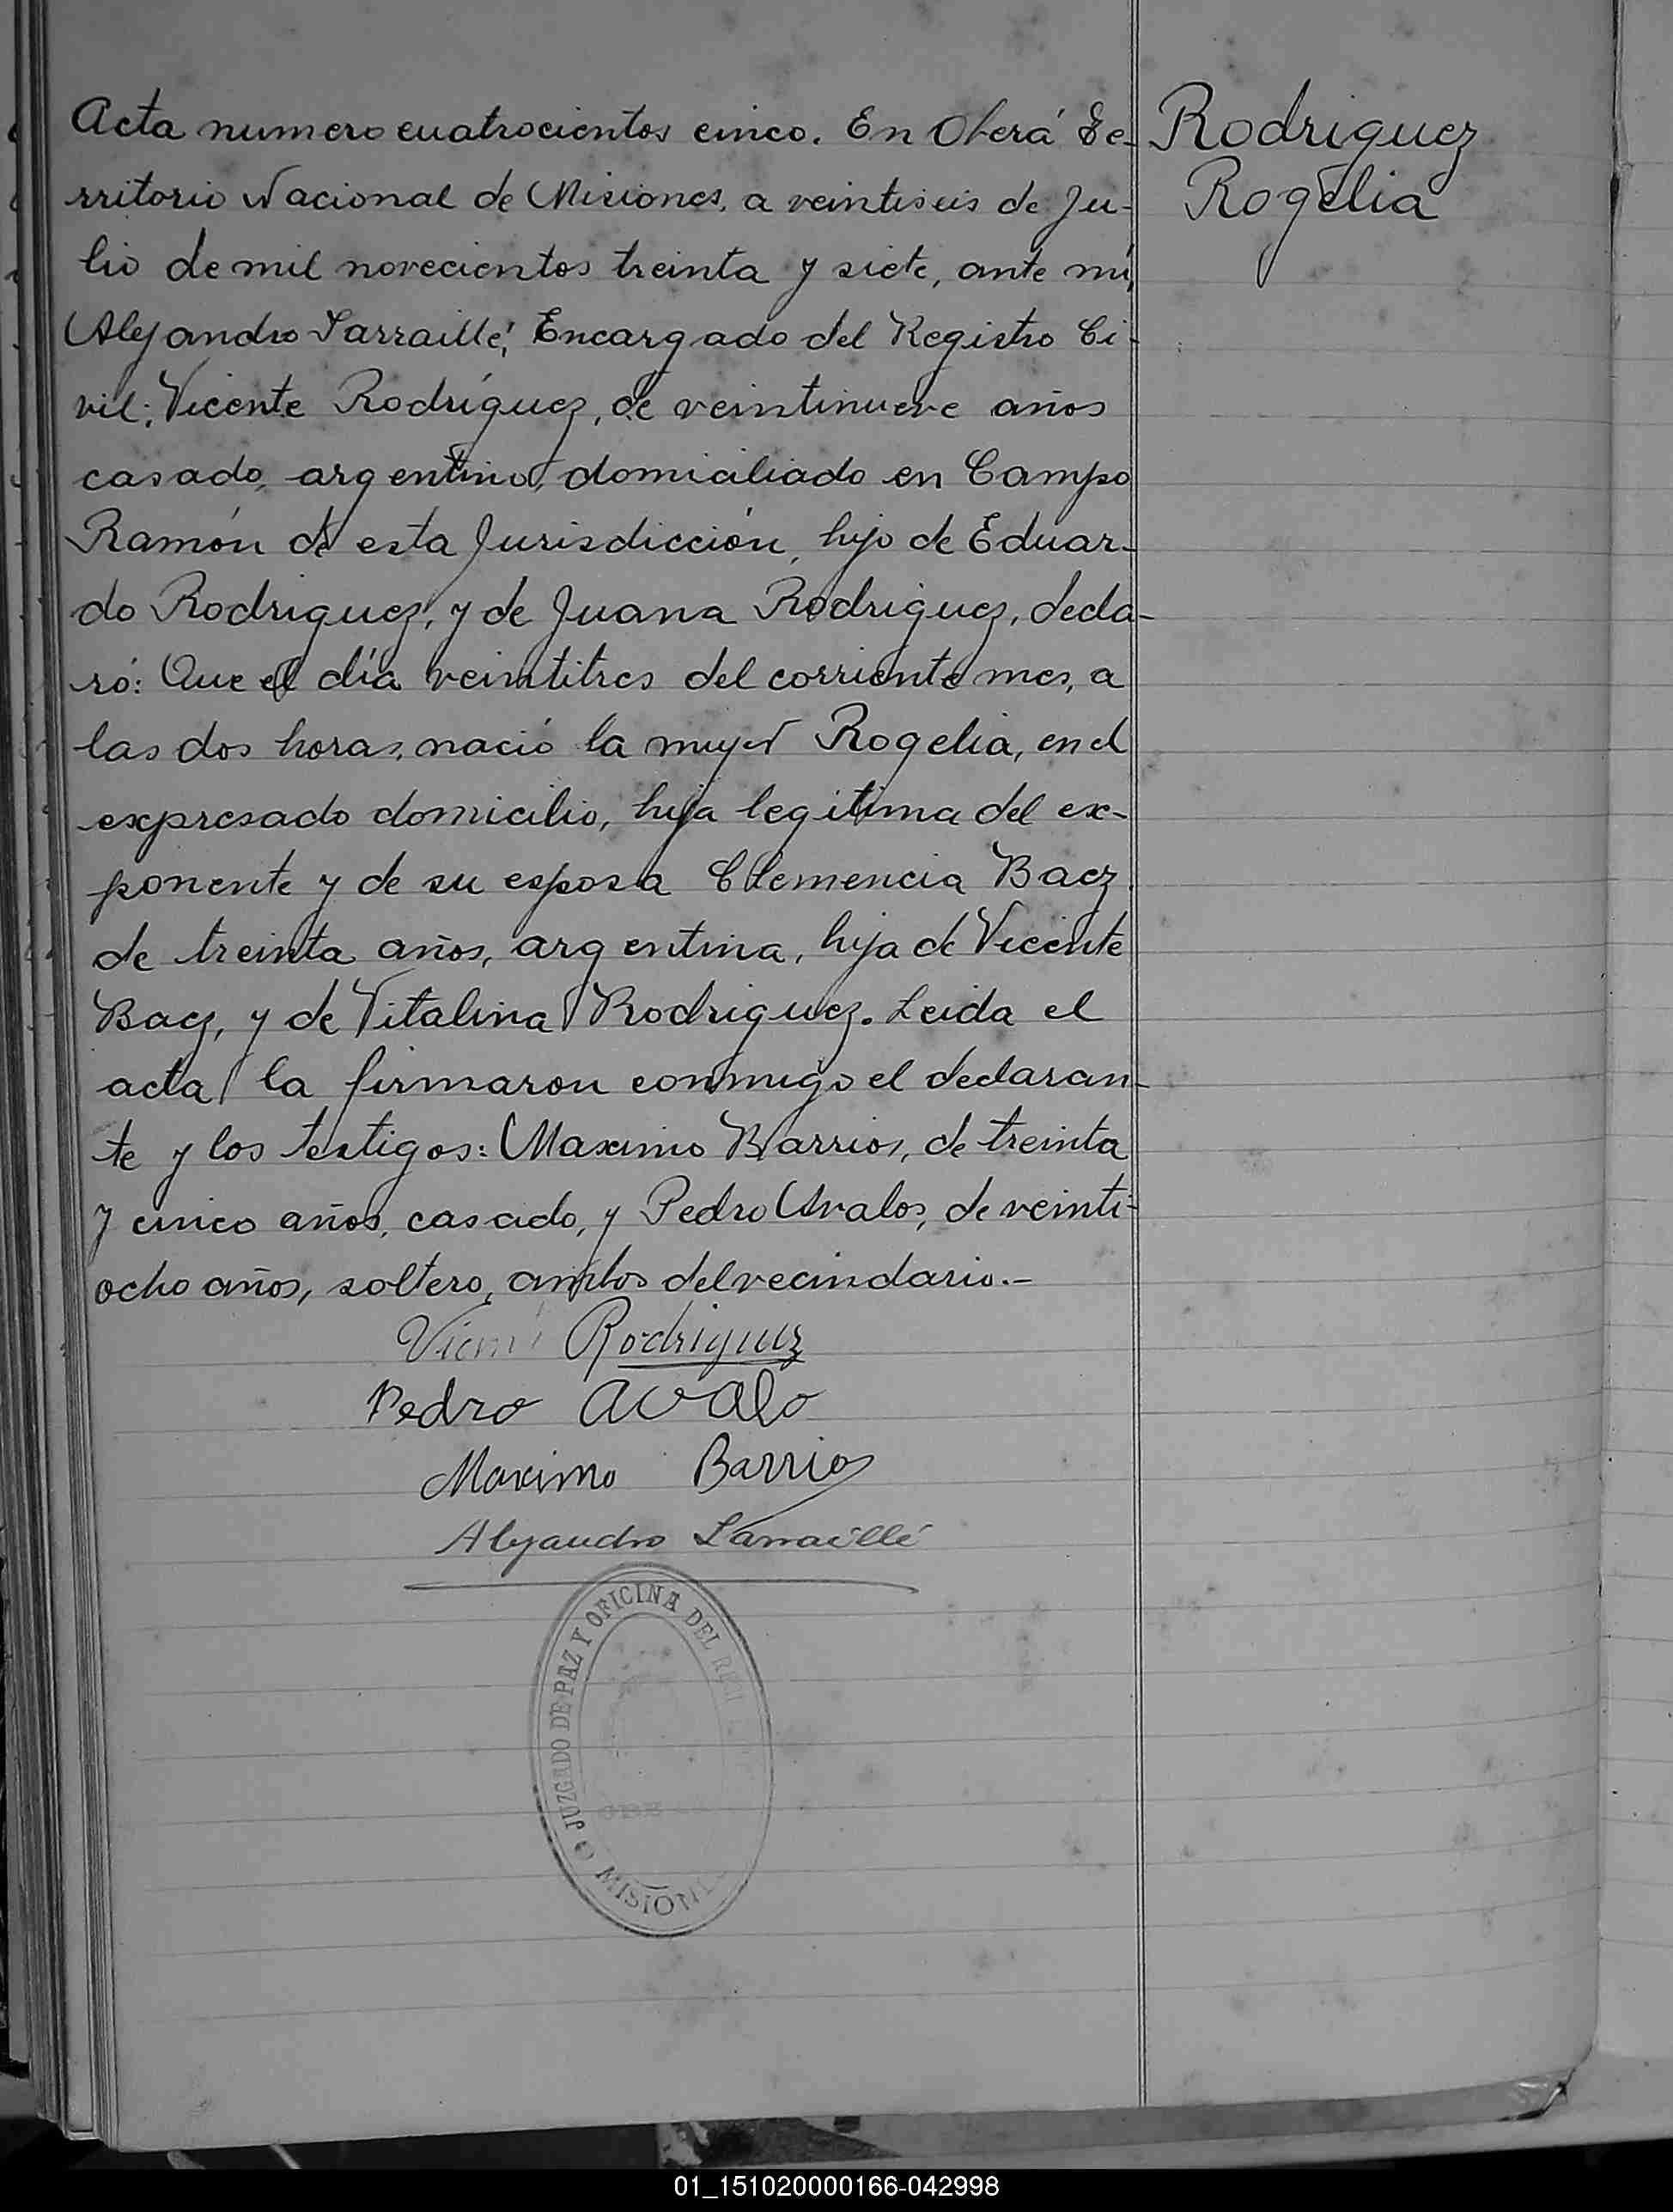 Acta numero cuatrocientos cinco. En Oberá Te-
rritorio Nacional de Misiones, a veintiseis de Ju-
lio de mil novecientos treinta y siete, ante mi,
Alejandro Larraillé, Encargado del Registro Ci-
vil; Vicente Rodríguez, de veintinueve años
casado, argentino, domiciliado en Campo
Ramón de esta Jurisdicción, hijo de Eduar-
do Rodriguez, y de Juana Rodriguez, decla-
ró: Que el día veintitres del corriente mes, a
las dos horas, nació la mujer Rogelia, en el
expresado domicilio, hija legitima del ex-
ponente y de su esposa Clemencia Baez
de treinta años, argentina, hija de Vicente
Baez, y de Vitalina Rodriguez. Leida el
acta la firmaron conmigo el declaran-
te y los testigos: Maximo Barrios, de treinta
y cinco años, casado, y Pedro Avalos, de veinti-
ocho años, soltero, ambos del vecindario.-
Rodriguez
Rogelia
Rodriguez
Pedro Avalo
Maximo Barrios
Alejandro Larraillé
JUZGADO DE PAZ Y OFICINA DEL
01_151020000166-042998